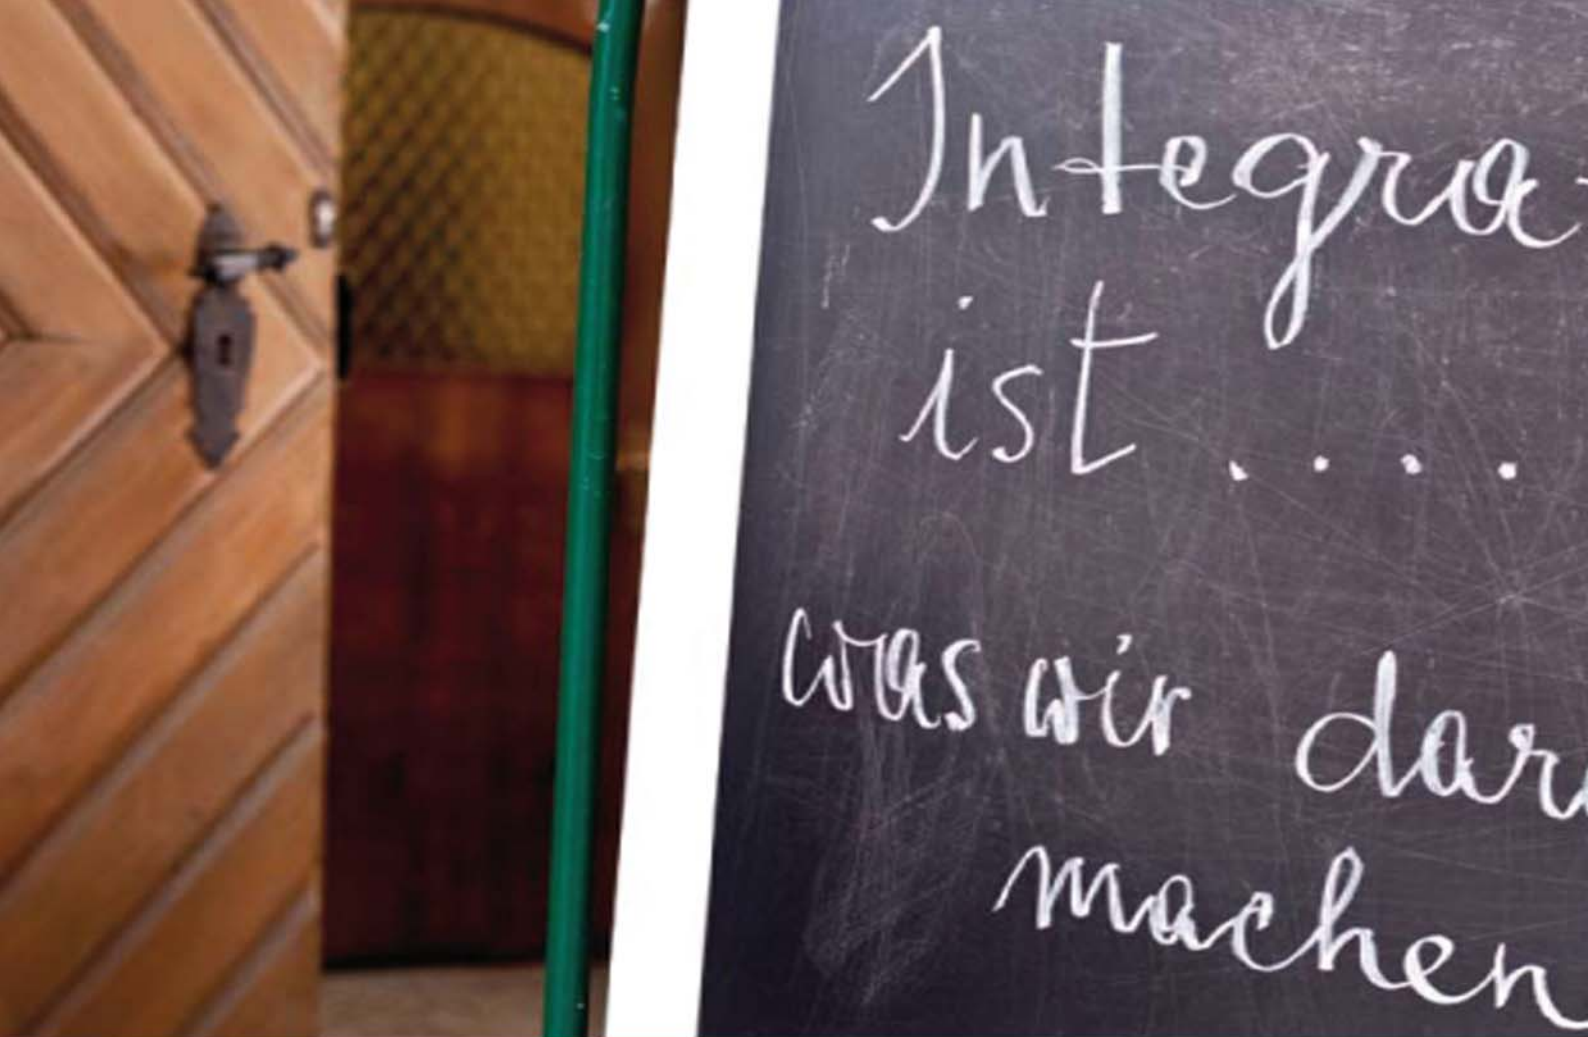 Integra
ist ....
was wir dar
machen